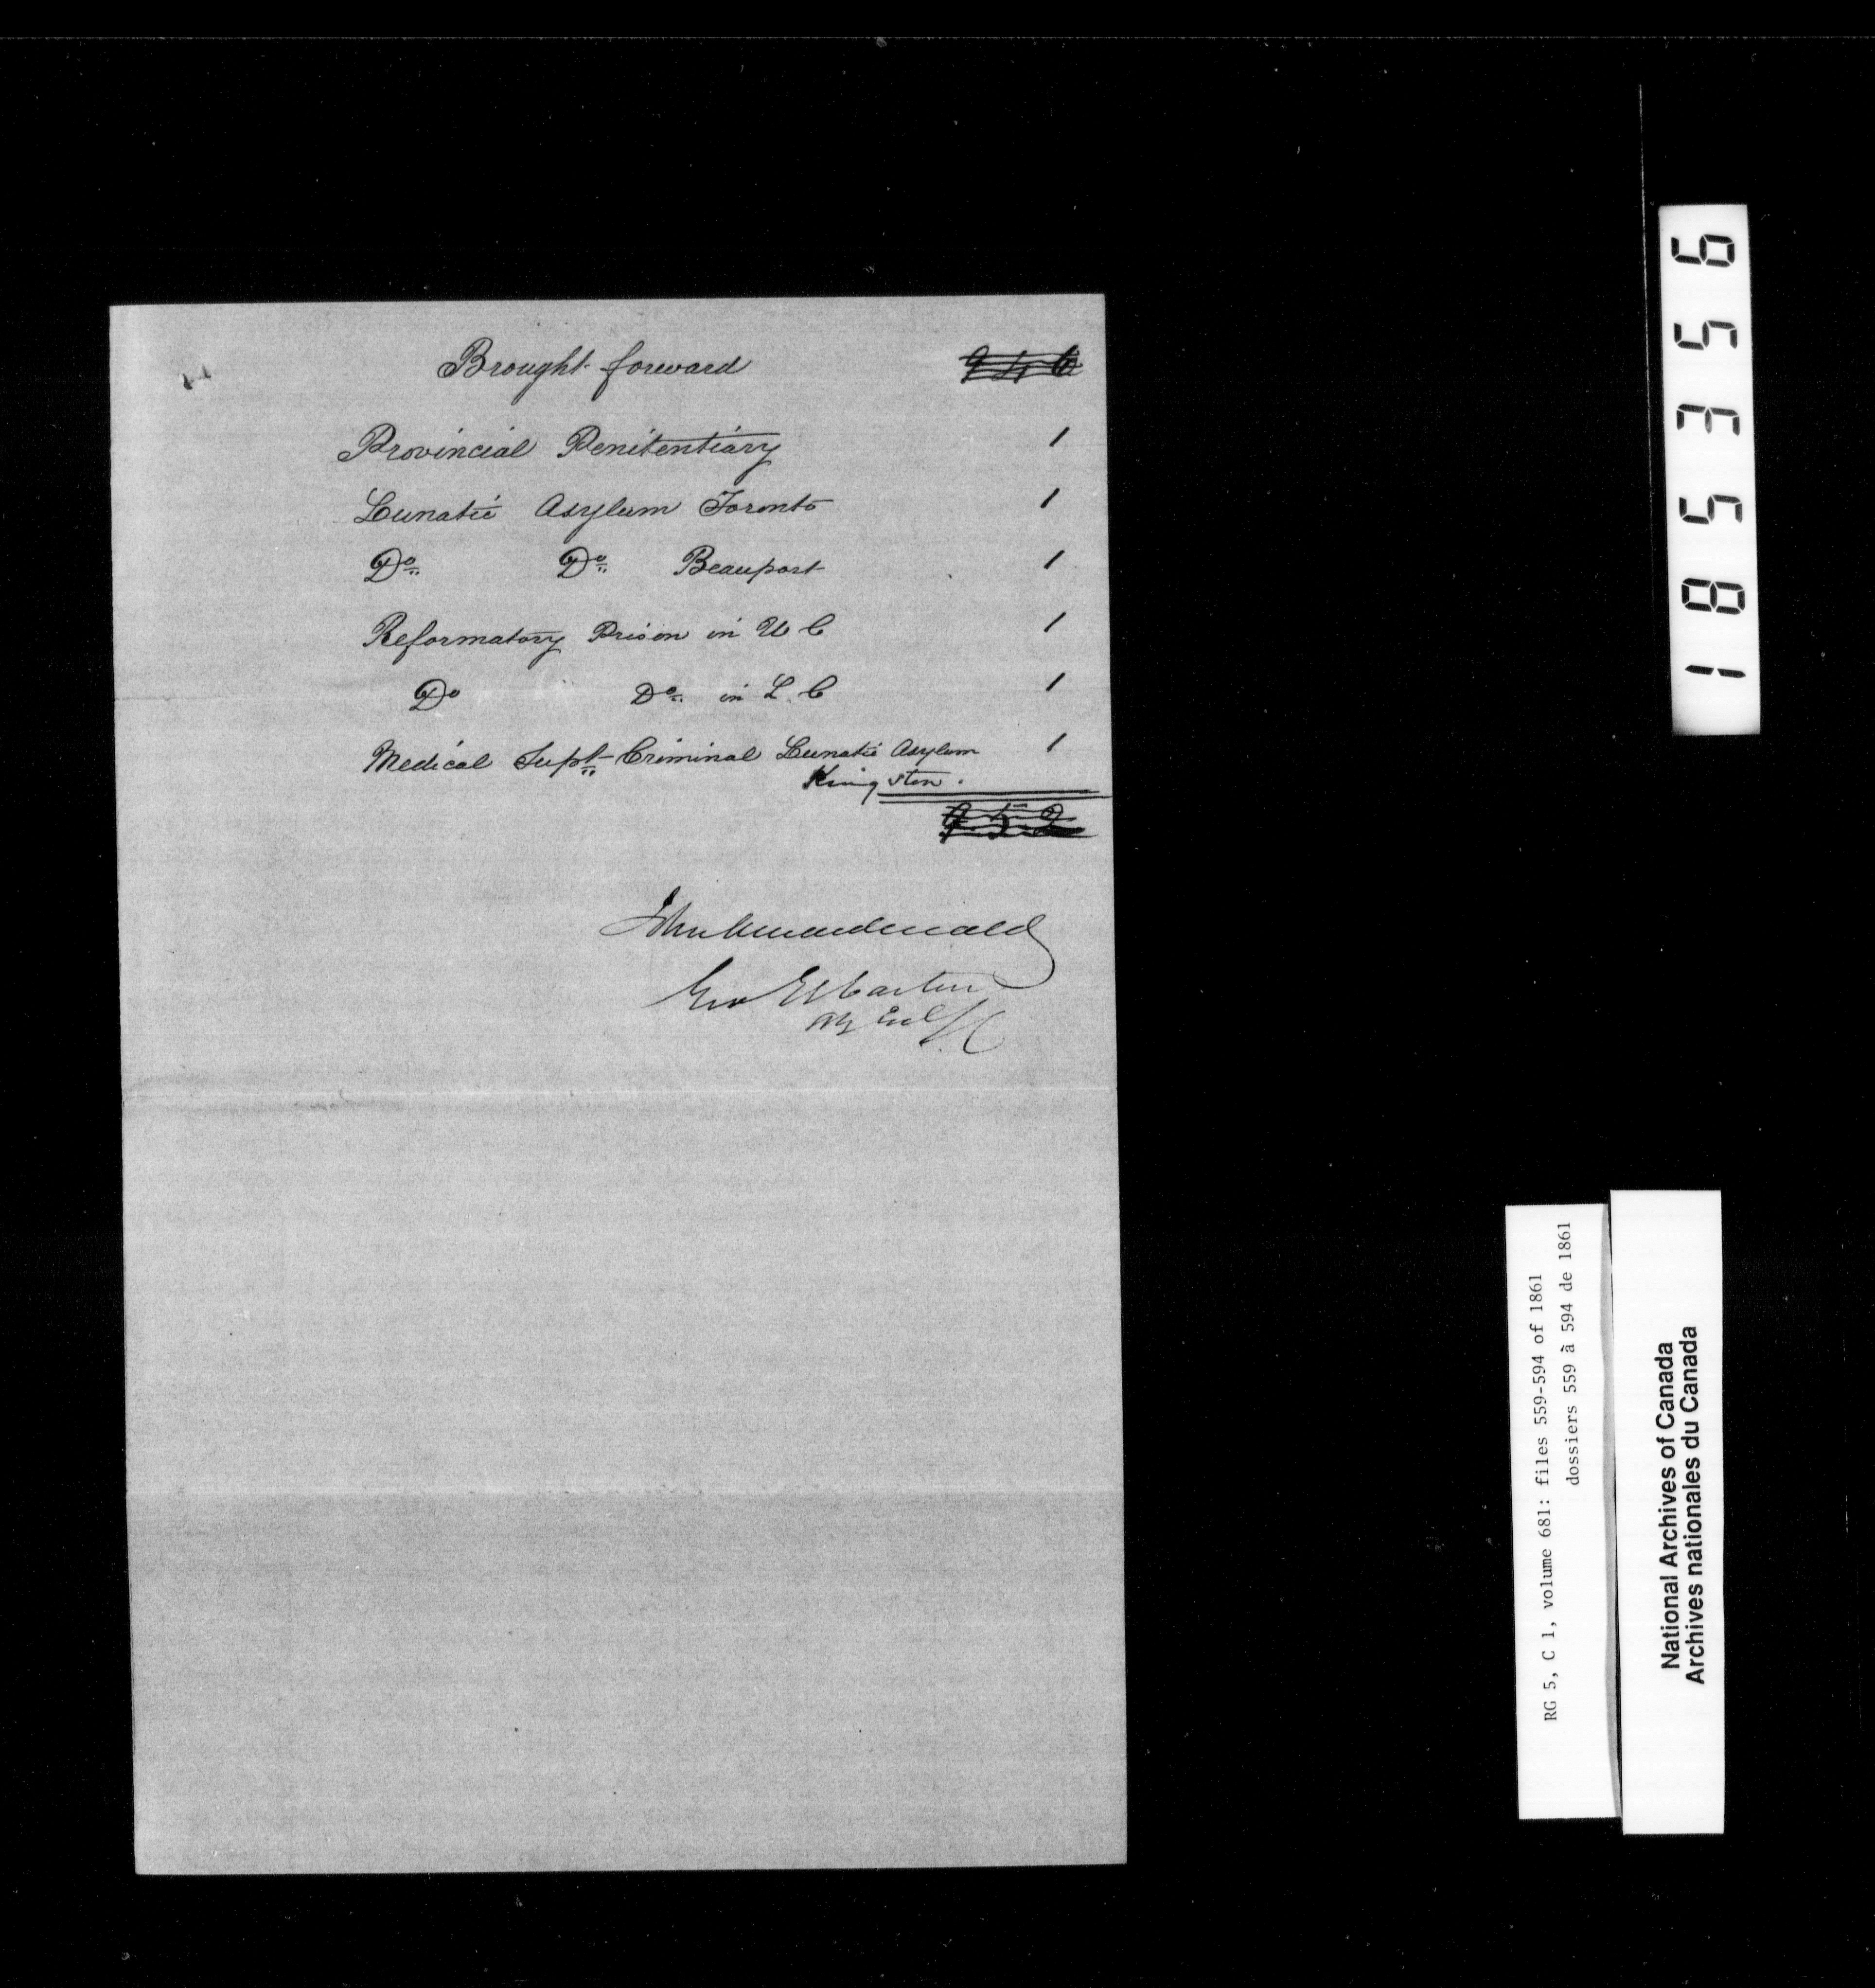 Brought forward 946
Provincial Penitentiary 1
Lunatic Asylum Toronto 1
Do Do Beauport 1
Reformatory Prison in U C 1
Do Do in L. C 1
Medical Supt Criminal Lunatic Asylum 1
Kingston.
952
Geo Et Cartier
185356
RG 5, C 1, volume 681: files 559-594 of 1861
dossiers 559 à 594 de 1861
National Archives of Canada
Archives nationales du Canada